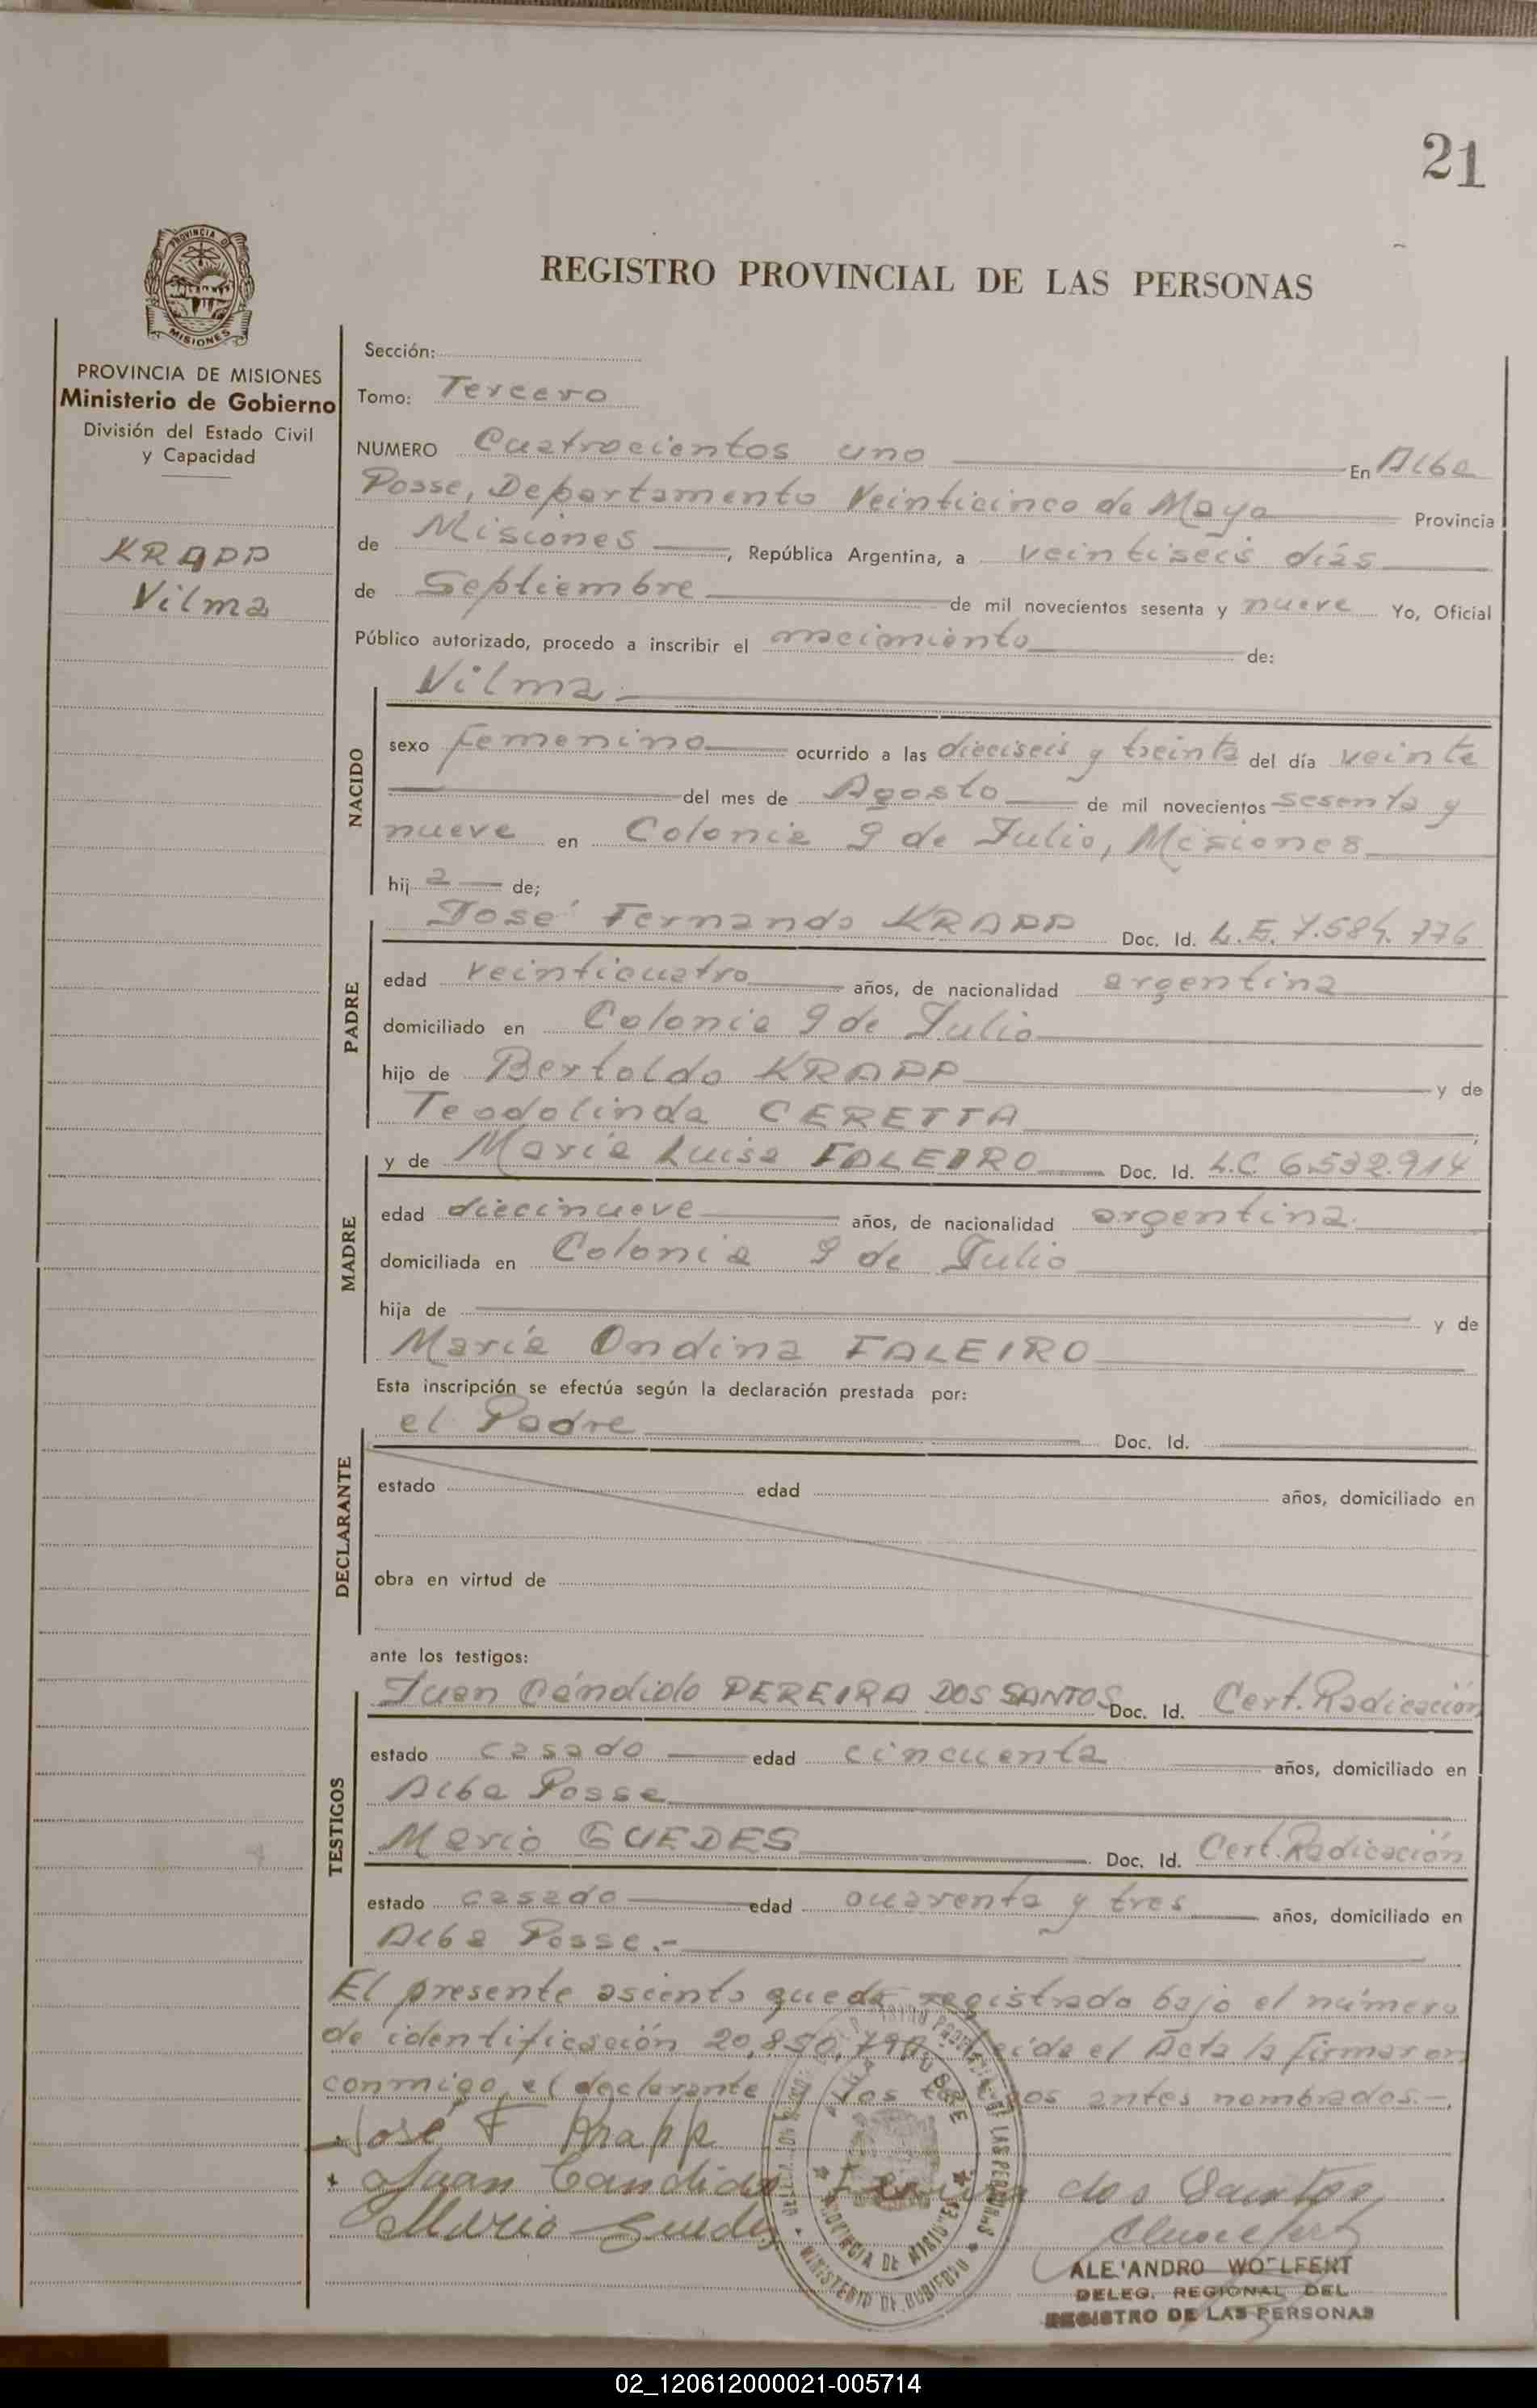 21
PROVINCIA DE
MISIONES
REGISTRO PROVINCIAL DE LAS PERSONAS
PROVINCIA DE MISIONES
Ministerio de Gobierno
División del Estado Civil
y Capacidad
KRAPP
Vilma
Sección:
Tomo: Tercero
NUMERO Cuatrocientos uno En Alba
Posse, Departamento Veinticinco de Mayo Provincia
de Misiones, República Argentina, a veintiseis días
de Septiembre de mil novecientos sesenta y nueve Yo, Oficial
Público autorizado, procedo a inscribir el nacimiento de:
NACIDO
Vilma.-
sexo femenino ocurrido a las dieciseis y treinta del día veinte
del mes de Agosto de mil novecientos sesenta y
nueve en Colonia 9 de Julio, Misiones
hij a de;
PADRE
José Fernando KRAPP Doc. Id. L.E. 7.584.776
edad veinticuatro años, de nacionalidad argentina
domiciliado en Colonia 9 de Julio
hijo de Bertoldo KRAPP y de
Teodolinda CERETTA;
MADRE
y de María Luisa FALEIRO Doc. Id. L.C. 6.532.914
edad diecinueve años, de nacionalidad argentina.
domiciliada en Colonia 9 de Julio
hija de y de
María Ondina FALEIRO
Esta inscripción se efectúa según la declaración prestada por:
DECLARANTE
el Padre Doc. Id.
estado edad años, domiciliado en
obra en virtud de
ante los testigos:
TESTIGOS
Juan Cándido PEREIRA DOS SANTOS Doc. Id. Cert. Radicación
estado casado edad cincuenta años, domiciliado en
Alba Posse
Mario GUEDES Doc. Id. Cert. Radicación
estado casado edad cuarenta y tres años, domiciliado en
Alba Posse.-
El presente asiento queda registrado bajo el número
de identificación 20.850.790 Leída el Acta la firmaron
conmigo, el declarante y los testigos antes nombrados.-
José F Krapp
Juan Candido Pereira dos Santos
Mario Guedes
PROVINCIA DE MISIONES
MINISTERIO DE GOBIERNO
ALEJANDRO WOLFENT
DELEG. REGIONAL DEL
REGISTRO DE LAS PERSONAS
02_120612000021-005714